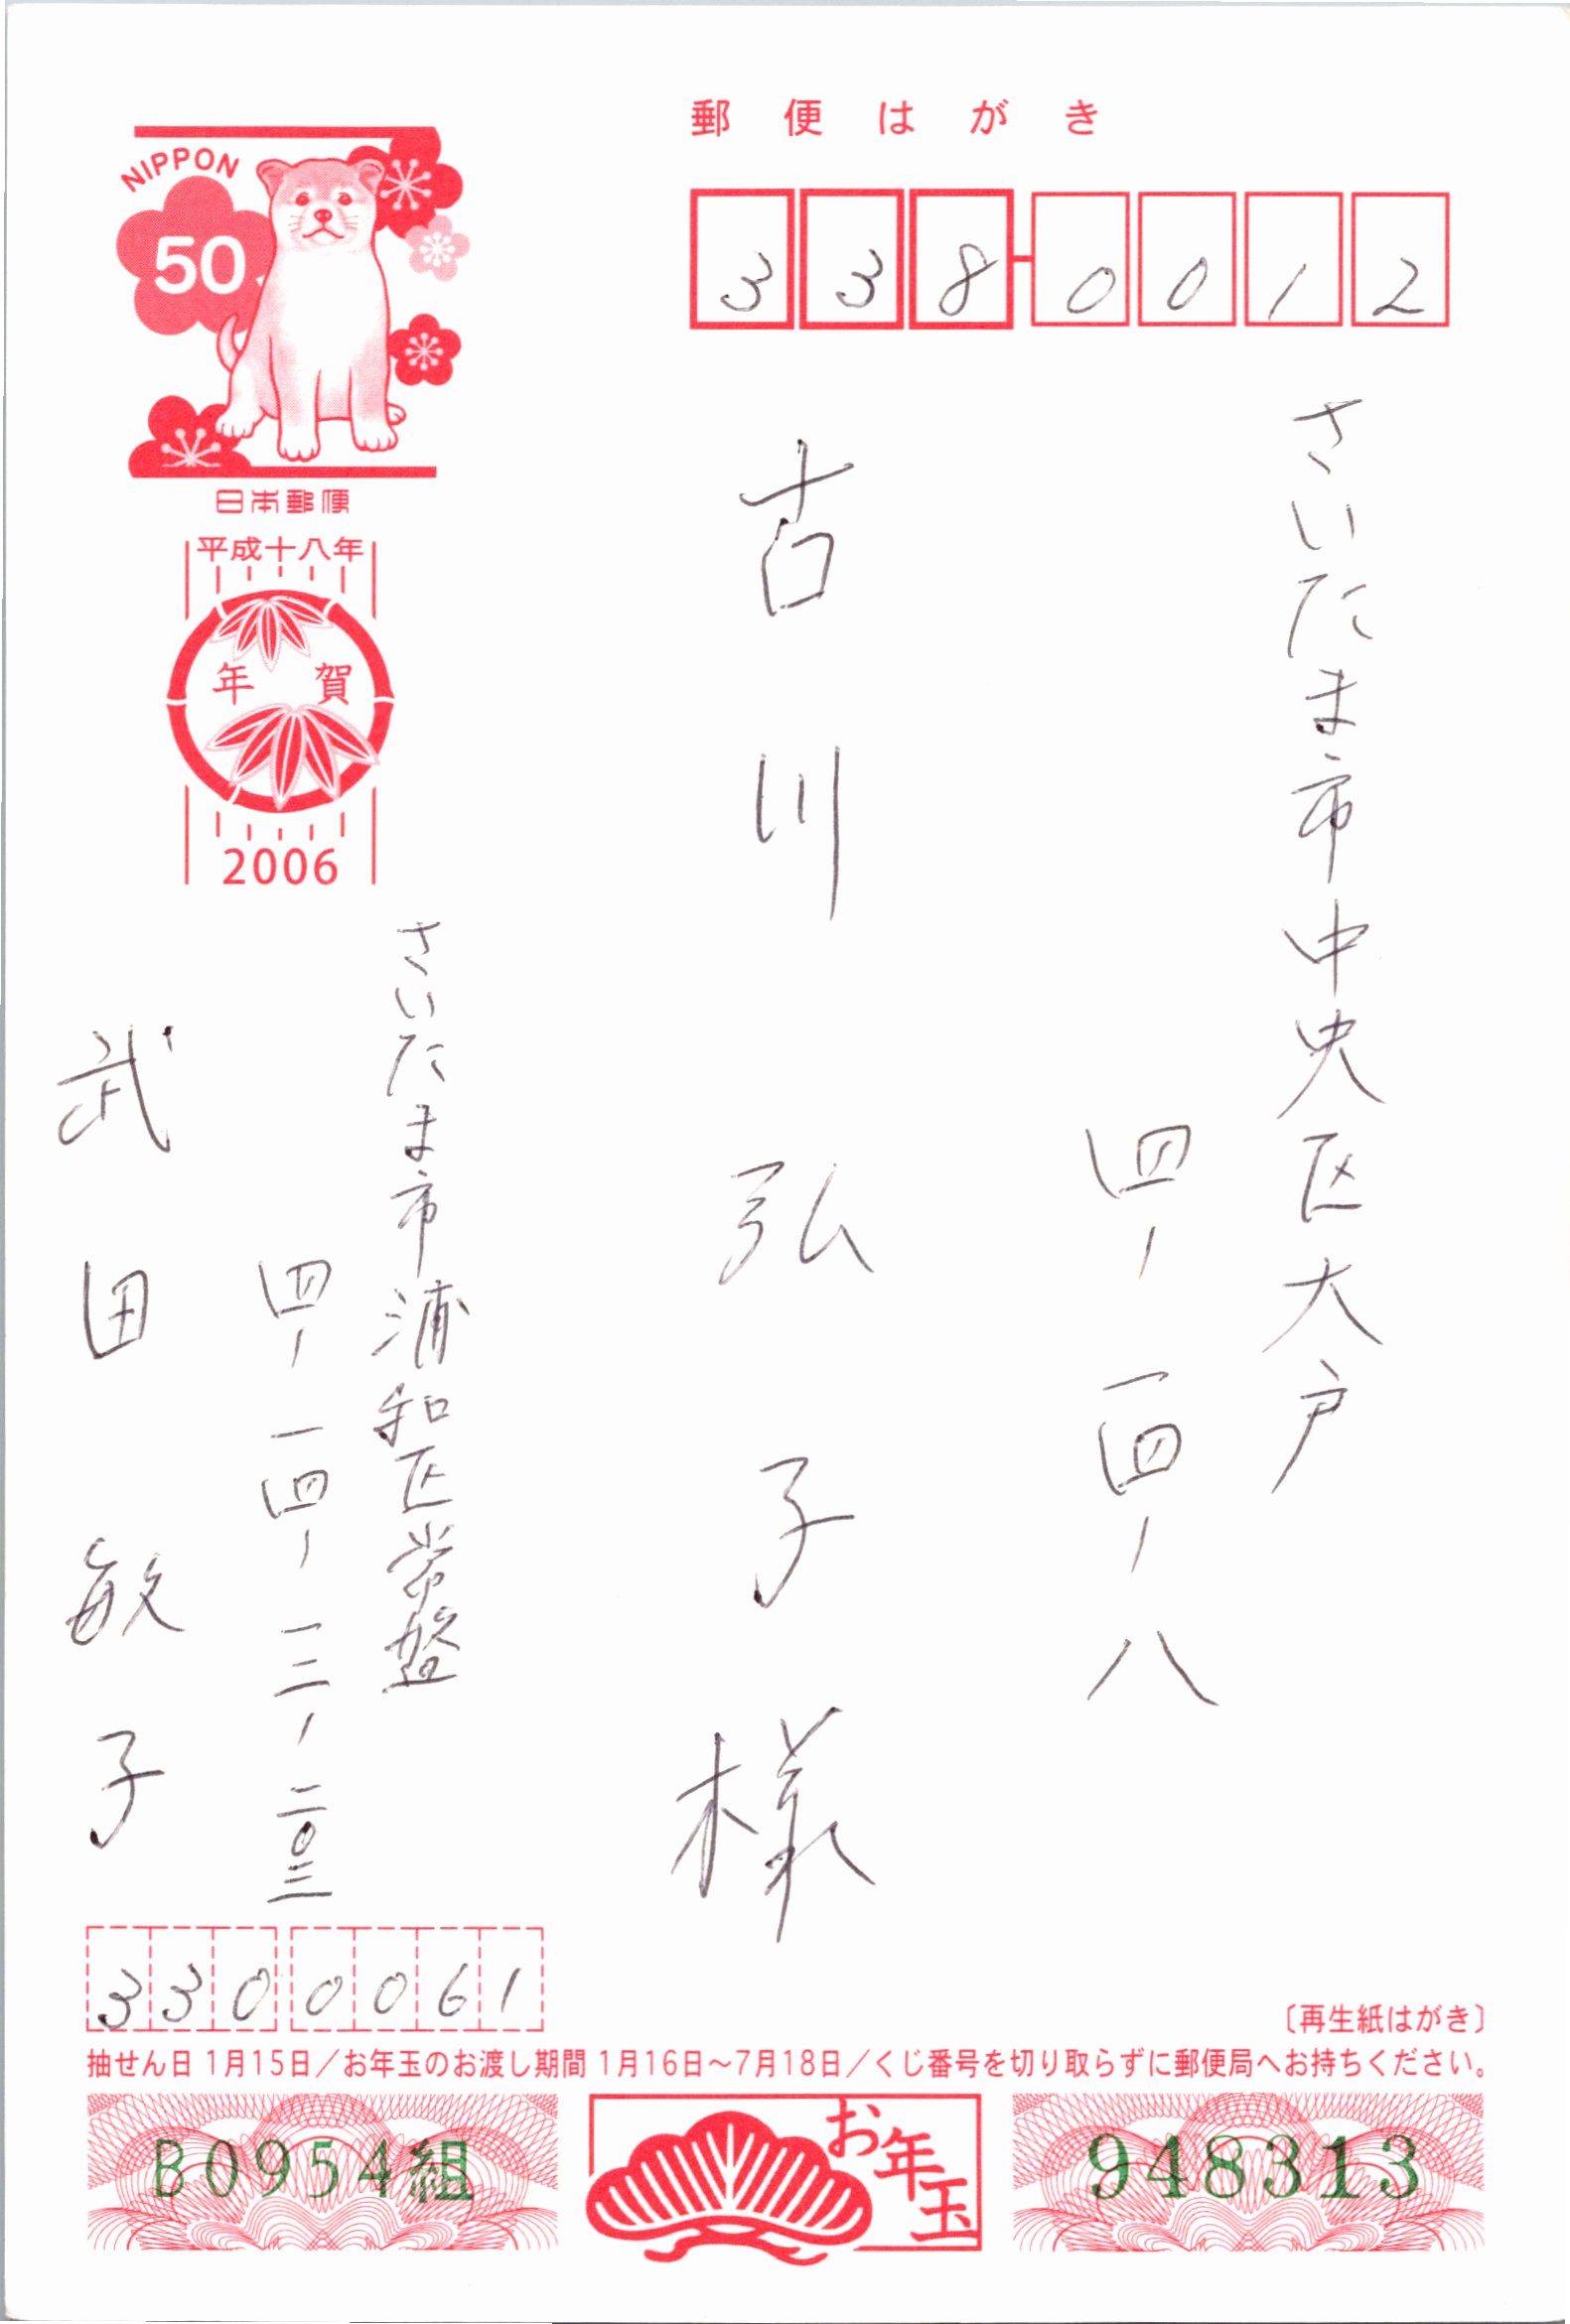 郵便はがき
338-0012
さいたま市中央区大戸
四-一四-八
古川弘子様
NIPPON
50
日本郵便
平成十八年
年賀
2006
さいたま市浦和区常盤
四-一四-一二-二〇三
武田敏子
3300061
〔再生紙はがき〕
抽せん日 1月15日／お年玉のお渡し期間 1月16日～7月18日／くじ番号を切り取らずに郵便局へお持ちください。
B0954組
お年玉
948313